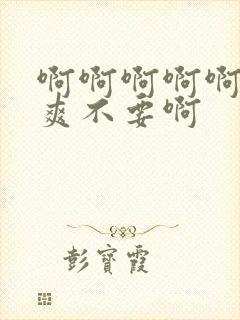 啊啊啊啊啊
爽不要啊
彭寳霞